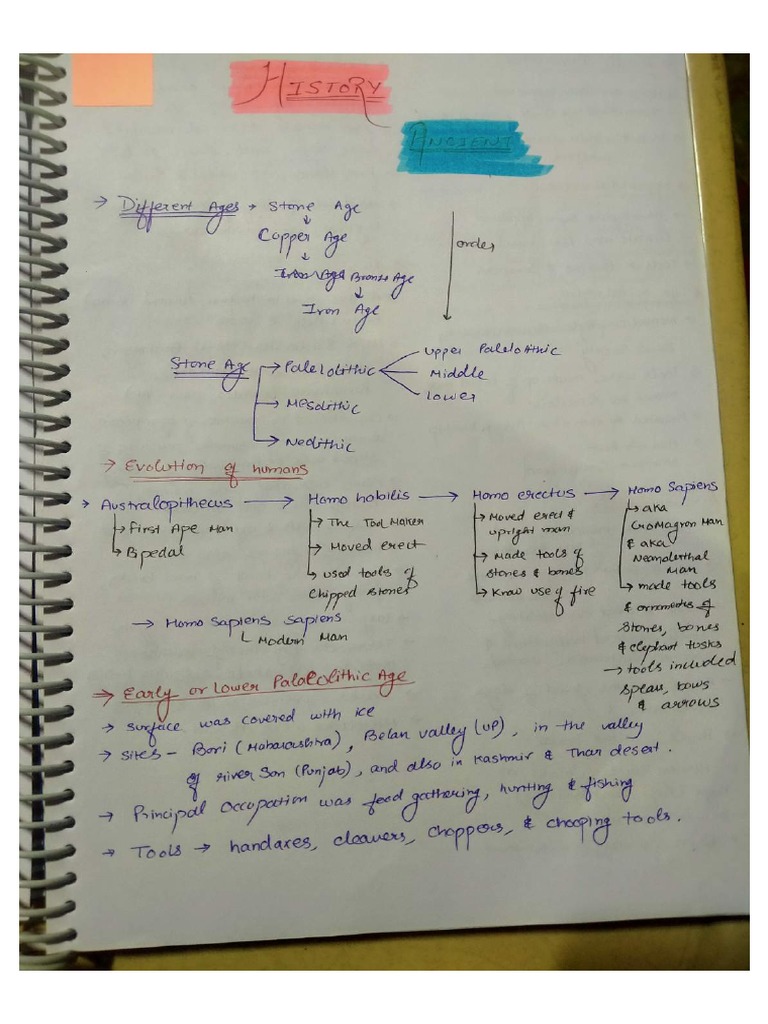 HISTORY
ANCIENT
→ Different Ages → Stone Age
↓
Copper Age
↓
Bronze Age
↓
Iron Age
order
Stone Age → Paleolithic
Upper Paleolithic
Middle
Lower
→ Mesolithic
→ Neolithic
→ Evolution of humans
→ Australopithecus → Homo habilis → Homo erectus → Homo Sapiens
→ First Ape Man
→ Bipedal
→ The Tool Maker
→ Moved erect
→ used tools of
Chipped Stones
→ Moved erect &
upright man
→ Made tools of
stones & bones
→ Know use of fire
→ aka
CroMagron Man
& aka
Neanderthal
Man
→ made tools
& ornametes of
Stones, bones
& elephant tusks
→ tools included
spears, bows
& arrows
→ Homo Sapiens sapiens
Modern Man
→ Early or Lower Palaeolithic Age
→ surface was covered with ice
→ Sites - Bori (Maharashtra), Belan valley (UP), in the valley
of river Son (Punjab), and also in Kashmir & Thar desert.
→ Principal Occupation was food gathering, hunting & fishing
→ Tools → handaxes, cleavers, choppers, & chooping tools.